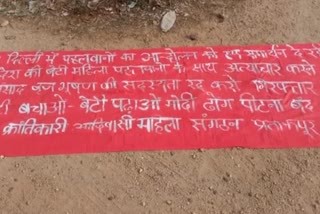 दिल्ली में पहलवानों का आन्दोलन को हम समर्थन दे रहे
की बेटी महिला पहलवानों के साथ अत्याचार करने
सांसद बृज भूषण की सदस्यता रद्द करो गिरफ्तार
बचाओ - बेटी पढ़ाओ मोदी ढोंग पीटना बंद
क्रांतिकारी आदिवासी महिला संगठन